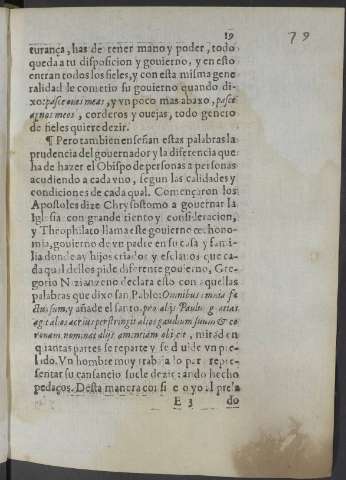 19
79
turança, has de tener mano y poder, todo
queda a tu disposicion y gouierno, y en esto
entran todos los fieles, y con esta misma gene
ralidad le cometio su gouierno quando di-
xo: pasce oues meas, y vn poco mas abaxo, pasce
agnos meos, corderos y ouejas, todo genero
de fieles quiere dezir.
¶ Pero tambien enseñan estas palabras la
prudencia del gouernador y la diferencia que
ha de hazer el Obispo de personas a personas
acudiendo a cada vno, segun las calidades y
condiciones de cada qual. Començaron los
Apostoles dize Chrysostomo a gouernar la
Iglesia con grande tiento y consideracion,
y Theophilato llama este gouierno œchono-
mia, gouierno de vn padre en su casa y fami-
lia donde ay hijos criados y esclauos que ca-
da qual dellos pide diferente gouierno, Gre-
gorio Nazianzeno declara esto con aquellas
palabras que dixo san Pablo: Omnibus omnia fa
ctus sum, y añade el santo. pro alijs Paulus gratias
agit alios acrius perstringit alios gaudium suum & co
ronam nominat alijs amentiam obijcit, mirad en
quantas partes se reparte y se diuide vn pre-
lado. Vn hombre muy trabajalo para repre-
sentar su cansancio suele dezir: ando hecho
pedaços. Desta manera
E 3
do